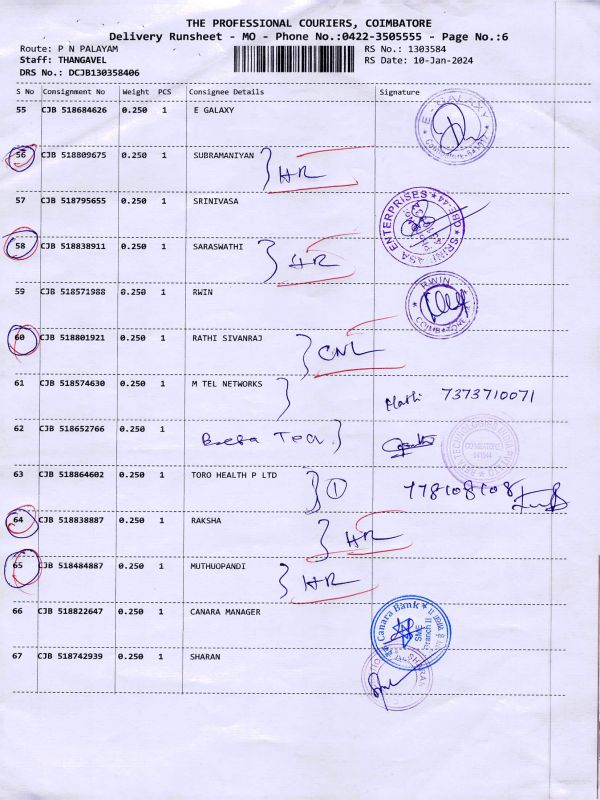 THE PROFESSIONAL COURIERS, COIMBATORE
Delivery Runsheet - MO - Phone No.:0422-3505555 - Page No.:6
Route: P N PALAYAM RS No.: 1303584
Staff: THANGAVEL RS Date: 10-Jan-2024
DRS No.: DCJB130358406
S No Consignment No Weight PCS Consignee Details Signature
55 CJB 518684626 0.250 1 E GALAXY
E-GALAXY
56 CJB 518809675 0.250 1 SUBRAMANIYAN HR
57 CJB 518795655 0.250 1 SRINIVASA
ENTERPRISES
58 CJB 518838911 0.250 1 SARASWATHI HR
59 CJB 518571988 0.250 1 RWIN
RWIN
COIMBATORE
60 CJB 518801921 0.250 1 RATHI SIVANRAJ CNL
61 CJB 518574630 0.250 1 M TEL NETWORKS 7373710071
62 CJB 518652766 0.250 1 Tech
COIMBATORE
641044
63 CJB 518864602 0.250 1 TORO HEALTH P LTD 1 778108108
64 CJB 518838887 0.250 1 RAKSHA HR
65 CJB 518484887 0.250 1 MUTHUOPANDI HR
66 CJB 518822647 0.250 1 CANARA MANAGER
Canara Bank
SME
Branch II
67 CJB 518742939 0.250 1 SHARAN
SHARAN